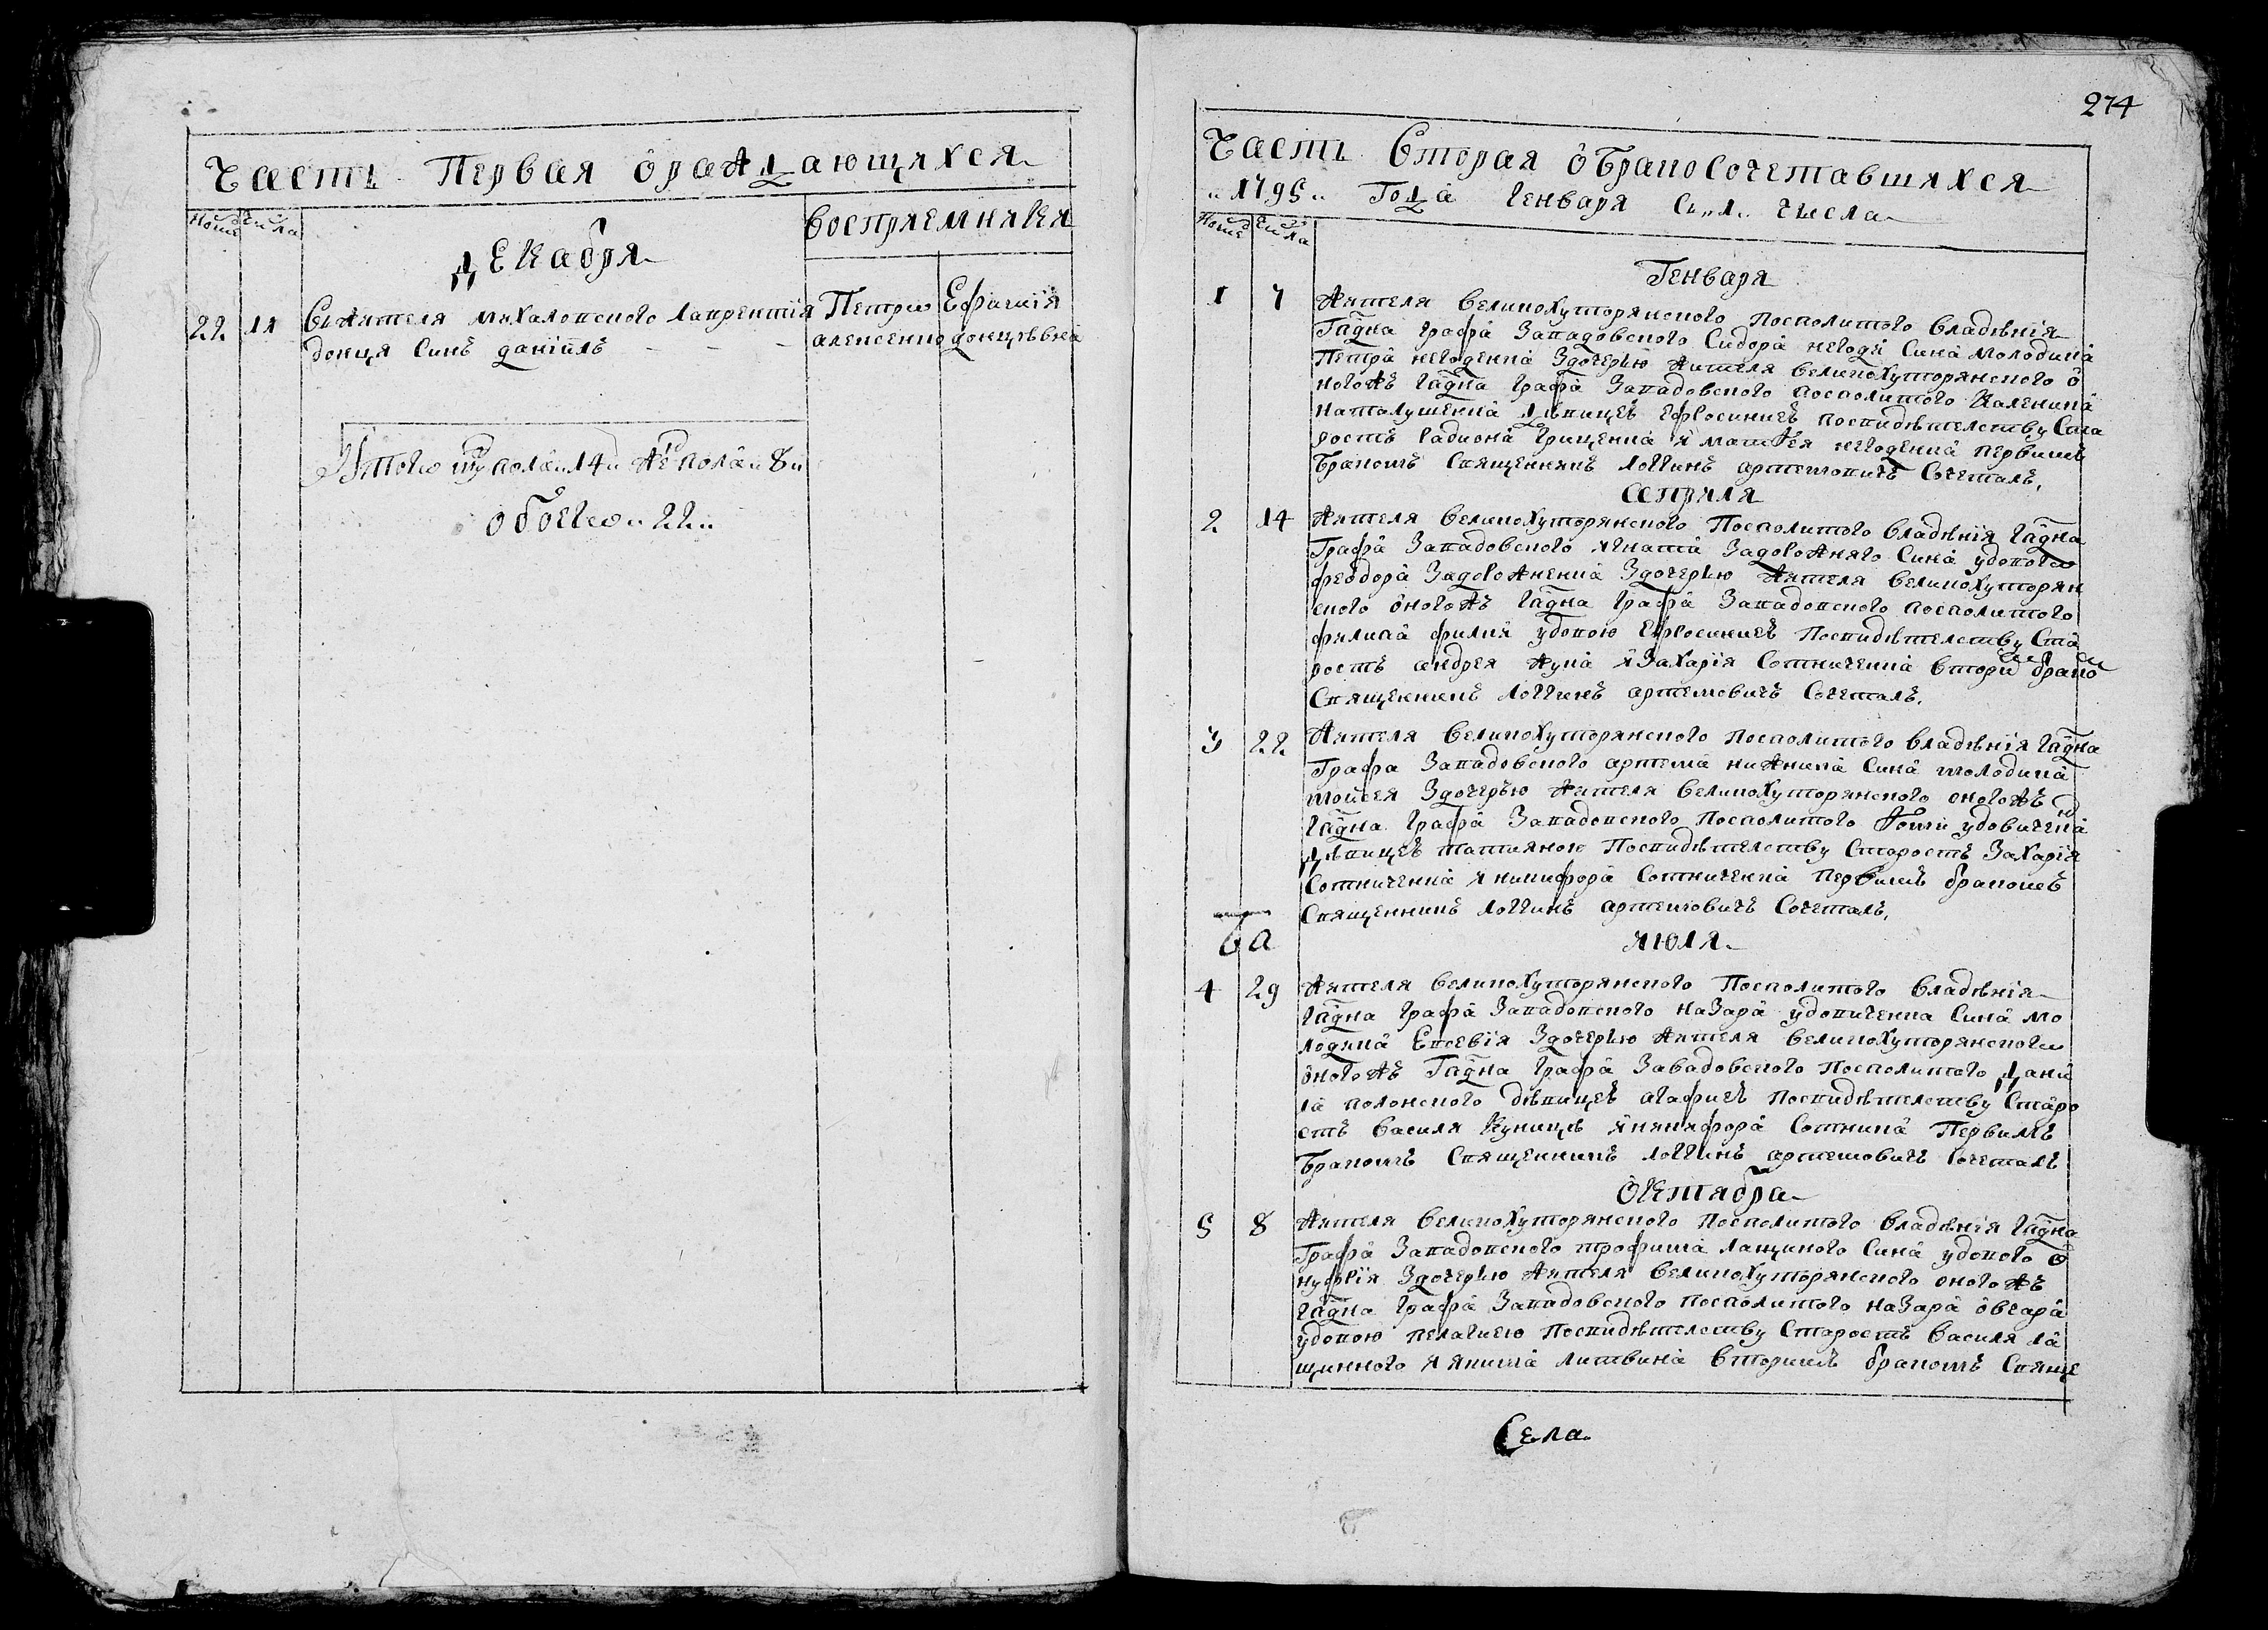 Часть Первая о раждающихся
Номе Числа
Декабря
Восприемники
22 11 В жителя Михаловского Лаврентія
донця Синъ даніилъ
Петръ алексенко
Ефимія донцѣвна
Итого муз пола „14„ жен пола „8„
обоего „22„
274
Часть Вторая о Бракосочетавшихся
„1795„ Года Генваря Съ „1„ числа
Номе Числа
Генваря
1 7 Жителя великохуторянского посполитого владѣнія
Гадна графа Завадовского Сидора негоди Сина молодика
Петра негоденка Здочерью жителя великохуторянского о
ногожъ Гадна графа Завадовского посполитого Каленика
наталушенка дѣвицеѣ ефросиниеѣ посвидѣтелству Ста
ростъ Радиона Грищенка и матѳея негоденка первимъ
бракомъ Священникъ логгинъ артемовичъ Сочеталъ.
априля
2 14 Жителя великохуторянского Посполитого владѣнія Гадна
Графа Завадовского игната Задорожняго Сина удового
феодора Задорожненка Здочерью жителя великохуторян
ского оногожъ Гадна графа Завадовского посполитого
филипа филия удовою Ефросиниеѣ Посвидѣтелству Ста
ростъ андрея жука и Захарія Сотниченка вторимъ бракомъ
Священникъ логгинъ артемовичъ Сочеталъ.
3 22 Жителя великохуторянского посполитого владѣнія Гадна
Графа Завадовского артема нижника Сина молодика
мойсея Здочерью жителя великохуторянского оногожъ
Гадна графа Завадовского Посполитого Ѳоми удовиченка
дѣвицеѣ татияною Посвидѣтелству Старостъ Захарія
Сотниченка и никифора Сотниченка первимъ бракомъ
Священникъ логгинъ артемовичъ Сочеталъ.
июля
4 29 Жителя великохуторянского Посполитого владѣнія
Гадна графа Завадовского назара удовиченка Сина мо
лодика Евсевія Здочерью жителя великохуторянского
оногожъ Гадна графа Завадовского Посполитого Дани
ла полонского дѣвицеѣ агафиеѣ посвидѣтелству Старо
стъ василя Куницѣ и никифора Сотника Первимъ
бракомъ Священникъ логгинъ артемовичъ Сочеталъ
Октября
5 8 Жителя великохуторянского посполитого владѣнія Гадна
Графа Завадовского трофима лащиного Сина удового о
нуфрія Здочерью жителя великохуторянского оногожъ
Гадна графа Завадовского посполитого назара овчара
удовою пелагиею посвидѣтелству Старостъ василя ла
щинного и якима литвина вторимъ бракомъ Свяще
Села